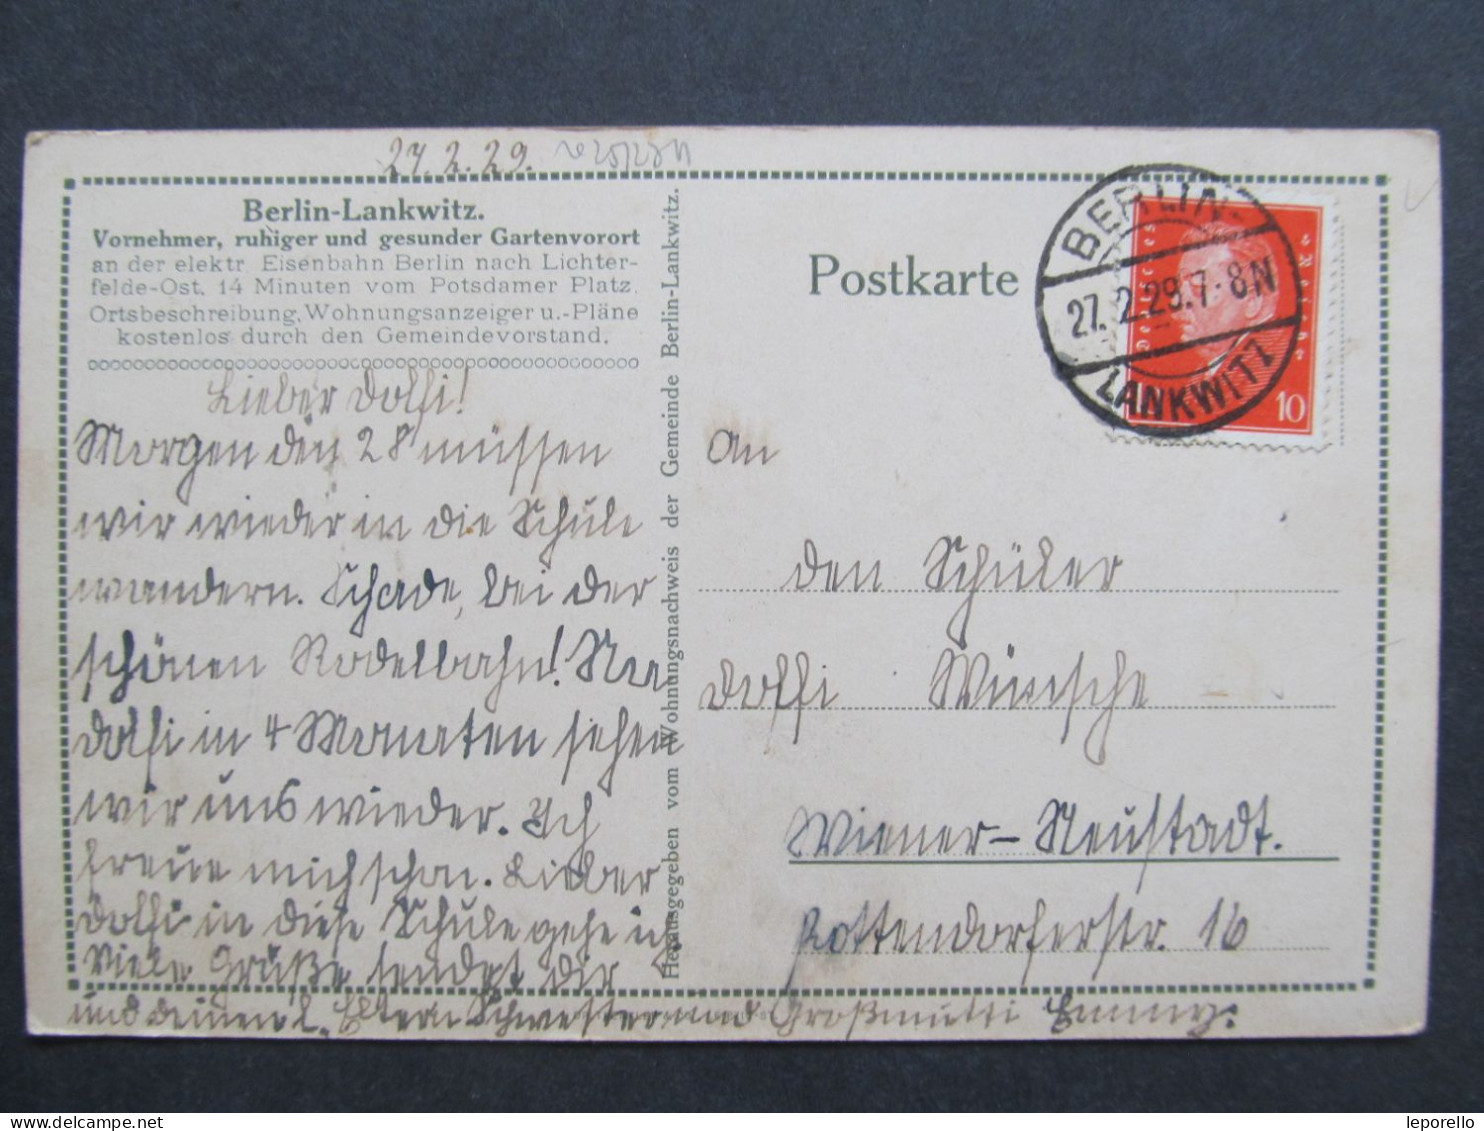 27. 2. 29.
Berlin-Lankwitz.
Vornehmer, ruhiger und gesunder Gartenvorort
an der elektr. Eisenbahn Berlin nach Lichter-
felde-Ost. 14 Minuten vom Potsdamer Platz.
Ortsbeschreibung, Wohnungsanzeiger u.-Pläne
kostenlos durch den Gemeindevorstand.
Lieber Dolfi!
Morgen den 28 müssen
wir wieder in die Schule
wandern. Schade, bei der
schönen Rodelbahn! Na
Dolfi in 4 Monaten sehen
wir uns wieder. Ich
freue mich schon. Lieber
Dolfi in diese Schule gehe ich
Viele Grüße sendet dir
und deinen l. Eltern Schwester und Großmutti Henny.
Herausgegeben vom Wohnungsnachweis der Gemeinde Berlin-Lankwitz.
Postkarte
BERLIN-
27. 2. 29. 7-8 N
LANKWITZ
Deutsches Reich
10
An
den Schüler
Dolfi Wünsche
Wiener-Neustadt.
Rottendorferstr. 16
leporello